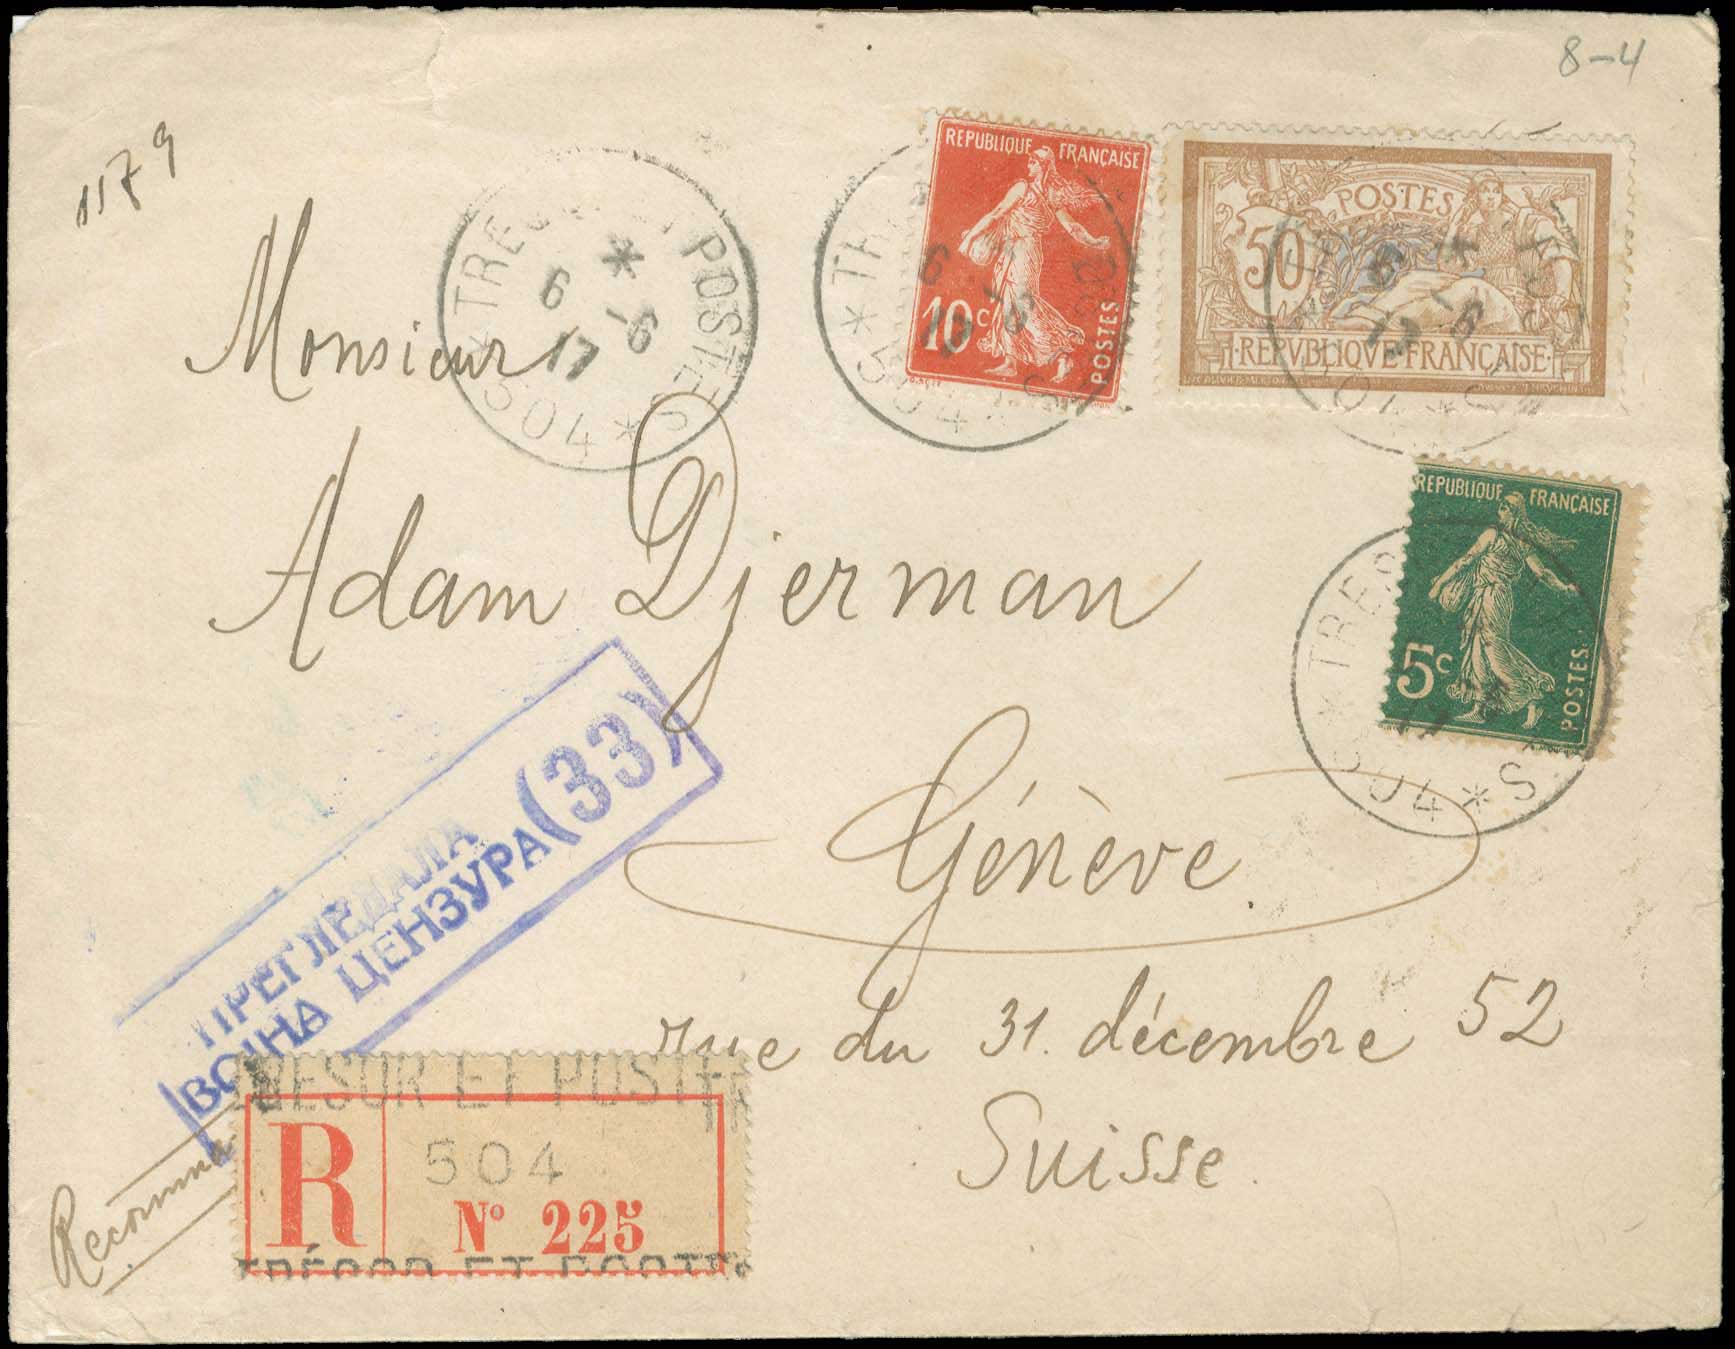 8-4
1179
REPUBLIQUE FRANÇAISE
10c
POSTES
POSTES
50
REPVBLIQVE FRANÇAISE
TRESOR ET POSTES
* 504 *
6 -6
17
Monsieur
Adam Djerman
REPUBLIQUE FRANÇAISE
5c
POSTES
Génève.
ПРЕГЛЕДАЛА
ВОЈНА ЦЕНЗУРА (33)
rue du 31. décembre 52
Suisse.
TRESOR ET POSTES
R
504
No 225
TRÉSOR ET POSTES